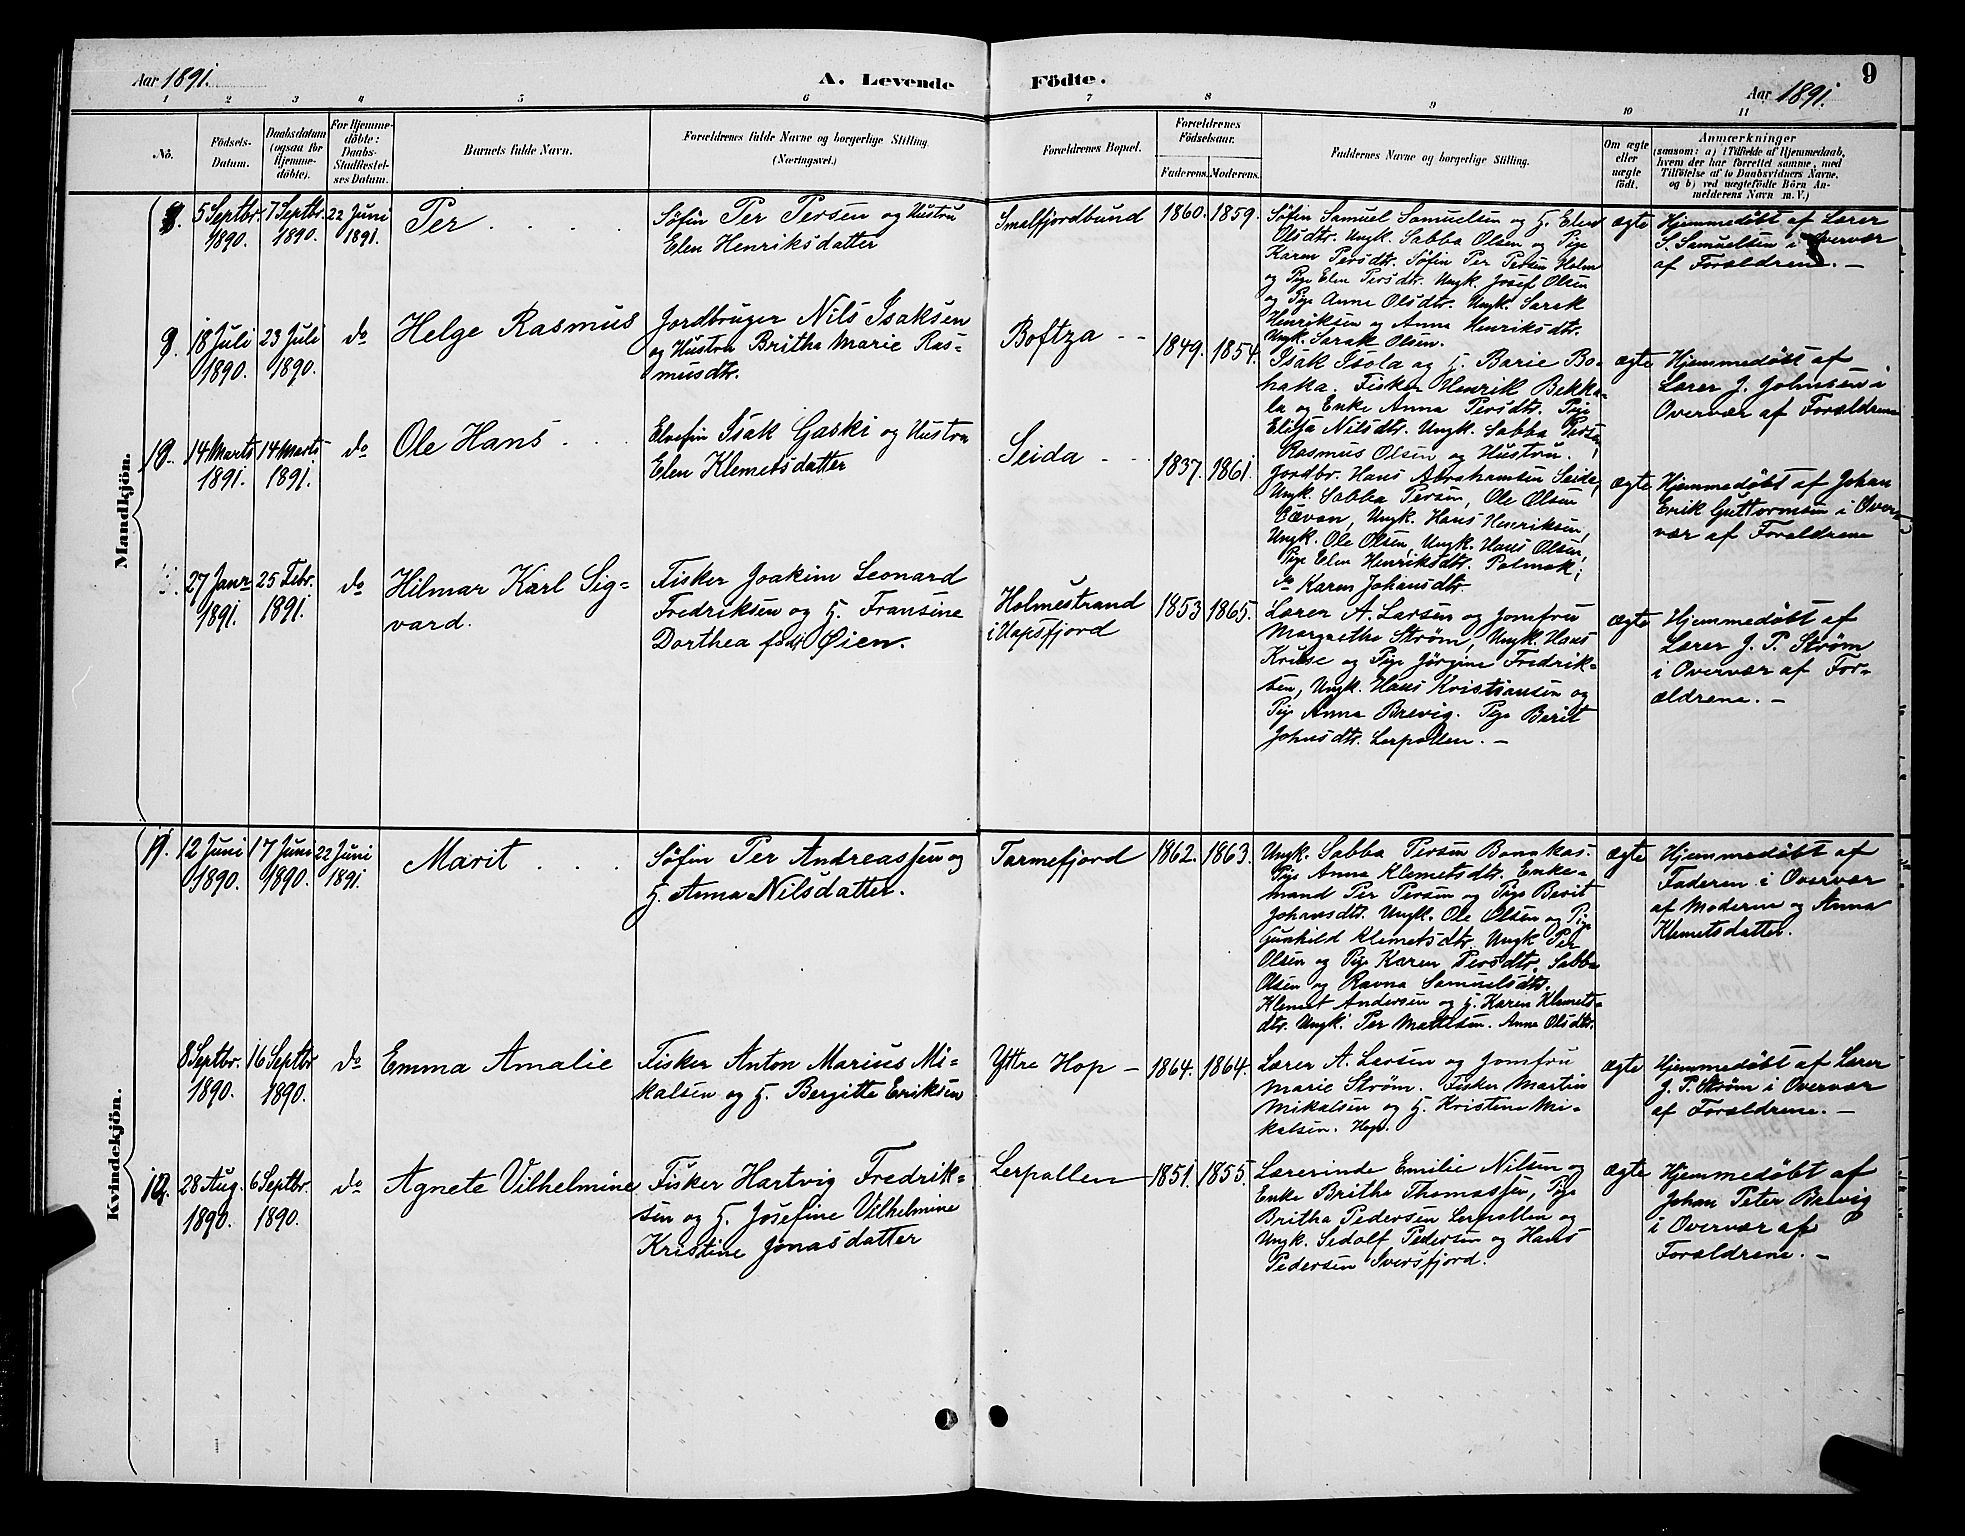 Aar 1891. A. Levende Födte. Aar 1891. 9
1 2 3 4 5 6 7 8 9 10 11
Nô.
Födsels-
Datum.
Daabsdatum
(ogsaa for
Hjemme-
döbte).
For Hjemme-
döbte:
Daabs-
Stadfæstel-
ses Datum.
Barnets fulde Navn.
Forældrenes fulde Navne og borgerlige Stilling.
(Næringsvei.)
Forældrenes Bopæl.
Forældrenes
Födselsaar.
Faderens. Moderens.
Faddernes Navne og borgerlige Stilling.
Om ægte
eller
uægte
født.
Anmærkninger
(saasom: a) i Tilfælde af Hjemmedaab,
hvem der har forrettet samme, med
Tilföielse af to Daabsvidners Navne,
og b) ved uægtefödte Börn An-
melderens Navn m. V.)
Mandkjön.
8. 5 Septbr.
1890.
7 Septbr.
1890.
22 Juni
1891.
Per
Søfin Per Persen og Hustru
Elen Henriksdatter
Smalfjordbund
1860. 1859.
Søfin Samuel Samuelsen og H. Elen
Olsdtr. Ungk. Sabba Olsen og Pige
Karen Persdtr. Søfin Per Persen Holm
og Pige Elen Persdtr. Ungk. Josef Olsen
og Pige Anne Olsdtr. Ungk. Sarak
Henriksen og Anna Henriksdtr.
Ungk. Sarak Olsen.
ægte
Hjemmedøbt af Lærer
S. Samuelsen i Overvær
af Forældrene. —
9. 18 Juli
1890.
23 Juli
1890.
do
Helge Rasmus
Jordbruger Nils Isaksen
og Hustru Britha Marie Ras-
musdtr.
Boftza
1849. 1854.
Isak Isola og H. Barie Bo-
haka. Fisker Henrik Bekka-
la og Enke Anna Persdtr. Pige
Elisa Nilsdtr. Ungk. Sabba Persen,
Rasmus Olsen og Hustru.
ægte
Hjemmedøbt af
Lærer J. Johnsen i
Overvær af Forældrene
10. 14 Marts
1891.
14 Marts
1891.
do
Ole Hans
Elvefin Isak Gaski og Hustru
Elen Klemetsdatter
Seida
1837. 1861.
Jordbr. Hans Abrahamsen Seida,
Ungk. Sabba Persen, Ole Olsen
Cævan, Ungk. Hans Henriksen,
Ungk. Ole Olsen, Ungk. Hans Olsen,
Pige Elen Henriksdtr. Polmak,
do Karen Johansdtr.
ægte
Hjemmedøbt af Johan
Erik Guttormsen i Over-
vær af Forældrene
27 Janr
1891.
25 Febr.
1891.
do
Hilmar Karl Sig-
vard.
Fisker Joakim Leonard
Fredriksen og H. Fransine
Dorthea født Øien.
Holmestrand
i Vapsfjord
1853 1865.
Lærer A. Larsen og Jomfru
Margrethe Strøm, Ungk. Hans
Kruse og Pige Jörgine Fredrik-
sen, Ungk. Hans Kristiansen og
Pige Anna Brevig. Pige Berit
Johnsdtr. Lerpollen. —
ægte
Hjemmedøbt af
Lærer J. P. Strøm
i Overvær af For-
ældrene. —
Kvindekjön.
11. 12 Juni
1890.
17 Juni
1890.
22 Juni
1891.
Marit
Søfin Per Andreassen og
H. Anna Nilsdatter.
Tarmefjord
1862. 1863.
Ungk. Sabba Persen Bonakas.
Pige Anna Klemetsdtr. Enke-
mand Per Persen og Pige Berit
Johansdtr. Ungk. Ole Olsen og Pige
Gunhild Klemetsdtr. Ungk Per
Olsen og Pige Karen Persdtr. Sabba
Olsen og Ravna Samuelsdtr.
Klemet Andersen og H. Karen Klemets-
dtr. Ungk. Per Mathisen. Anne Olsdtr.
ægte
Hjemmedøbt af
Faderen i Overvær
af Moderen og Anna
Klemetsdatter.
8 Septbr.
1890.
16 Septbr
1890.
do
Emma Amalie
Fisker Anton Marius Mi-
kalsen og H. Bergitte Eriksen
Yttre Hop —
1864. 1864.
Lærer A. Larsen og Jomfru
Marie Strøm. Fisker Martin
Mikalsen og H. Kristine Mi-
kalsen. Hop.
ægte
Hjemmedøbt af Lærer
J. P. Strøm i Overvær
af Forældrene. —
12. 28 Aug.
1890.
6 Septbr.
1890.
do
Agnete Vilhelmine
Fisker Hartvig Fredrik-
sen og H. Josefine Vilhelmine
Kristine Jonasdatter
Lerpollen
1851. 1855.
Lærerinde Emilie Nilsen og
Enke Britha Thomassen, Pige
Britha Pedersen Lerpollen og
Ungk. Sedolf Pedersen og Hans
Pedersen Iversfjord.
ægte
Hjemmedøbt af
Johan Peter Brevig
i Overvær af
Forældrene. —